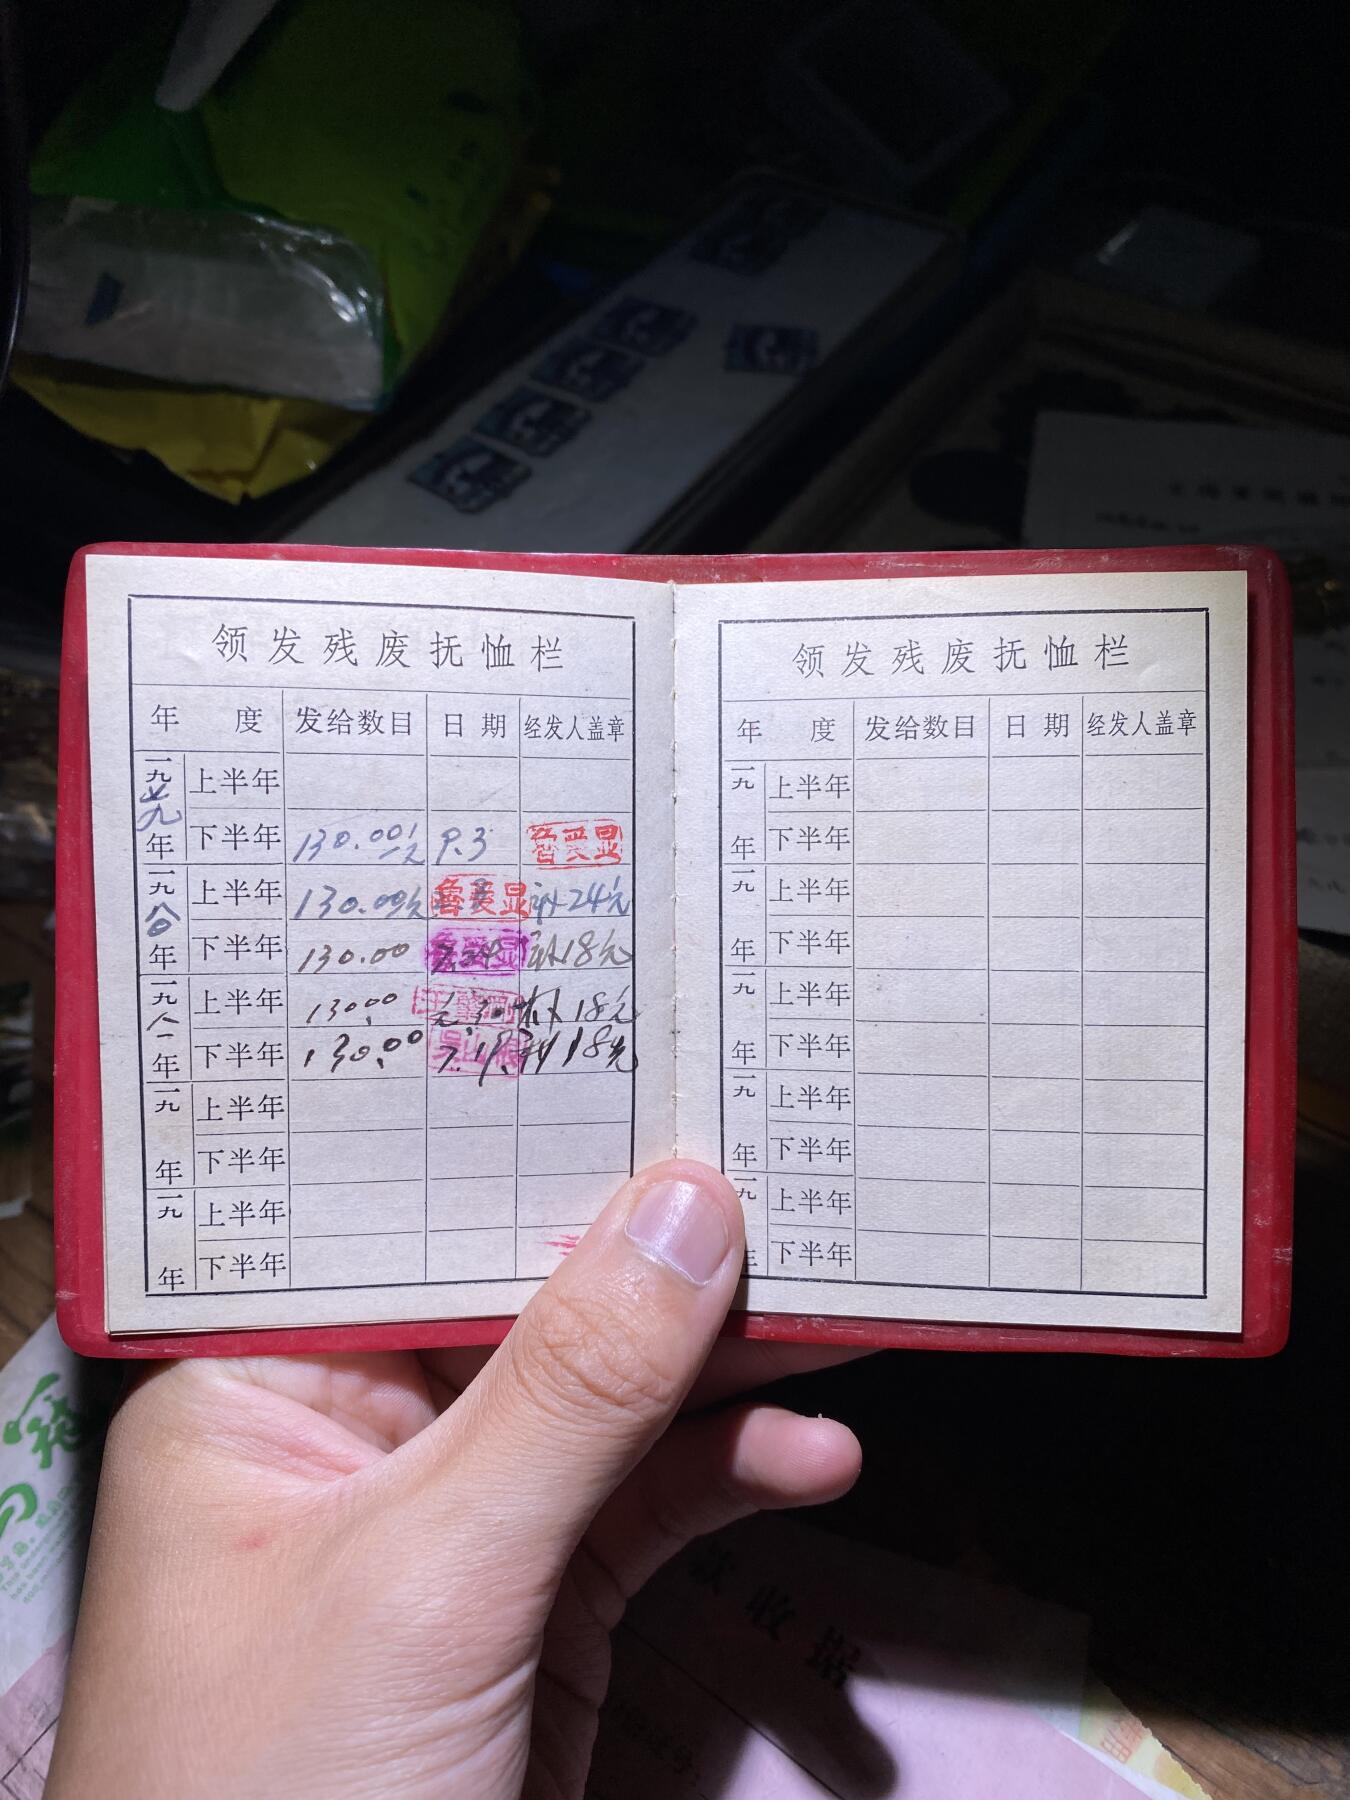 领发残废抚恤栏
年度 发给数目 日期 经发人盖章
一九七九年 上半年
下半年 130.00元 9.3 鲁受显
一九八〇年 上半年 130.00元 鲁受显 补24元
下半年 130.00 7.24 鲁受显 补18元
一九八一年 上半年 130.00 1.30 补18元
下半年 130.00 7.19 补18元
一九 年 上半年
下半年
一九 年 上半年
下半年
领发残废抚恤栏
年度 发给数目 日期 经发人盖章
一九 年 上半年
下半年
一九 年 上半年
下半年
一九 年 上半年
下半年
一九 年 上半年
下半年
一九 年 上半年
下半年
款收据